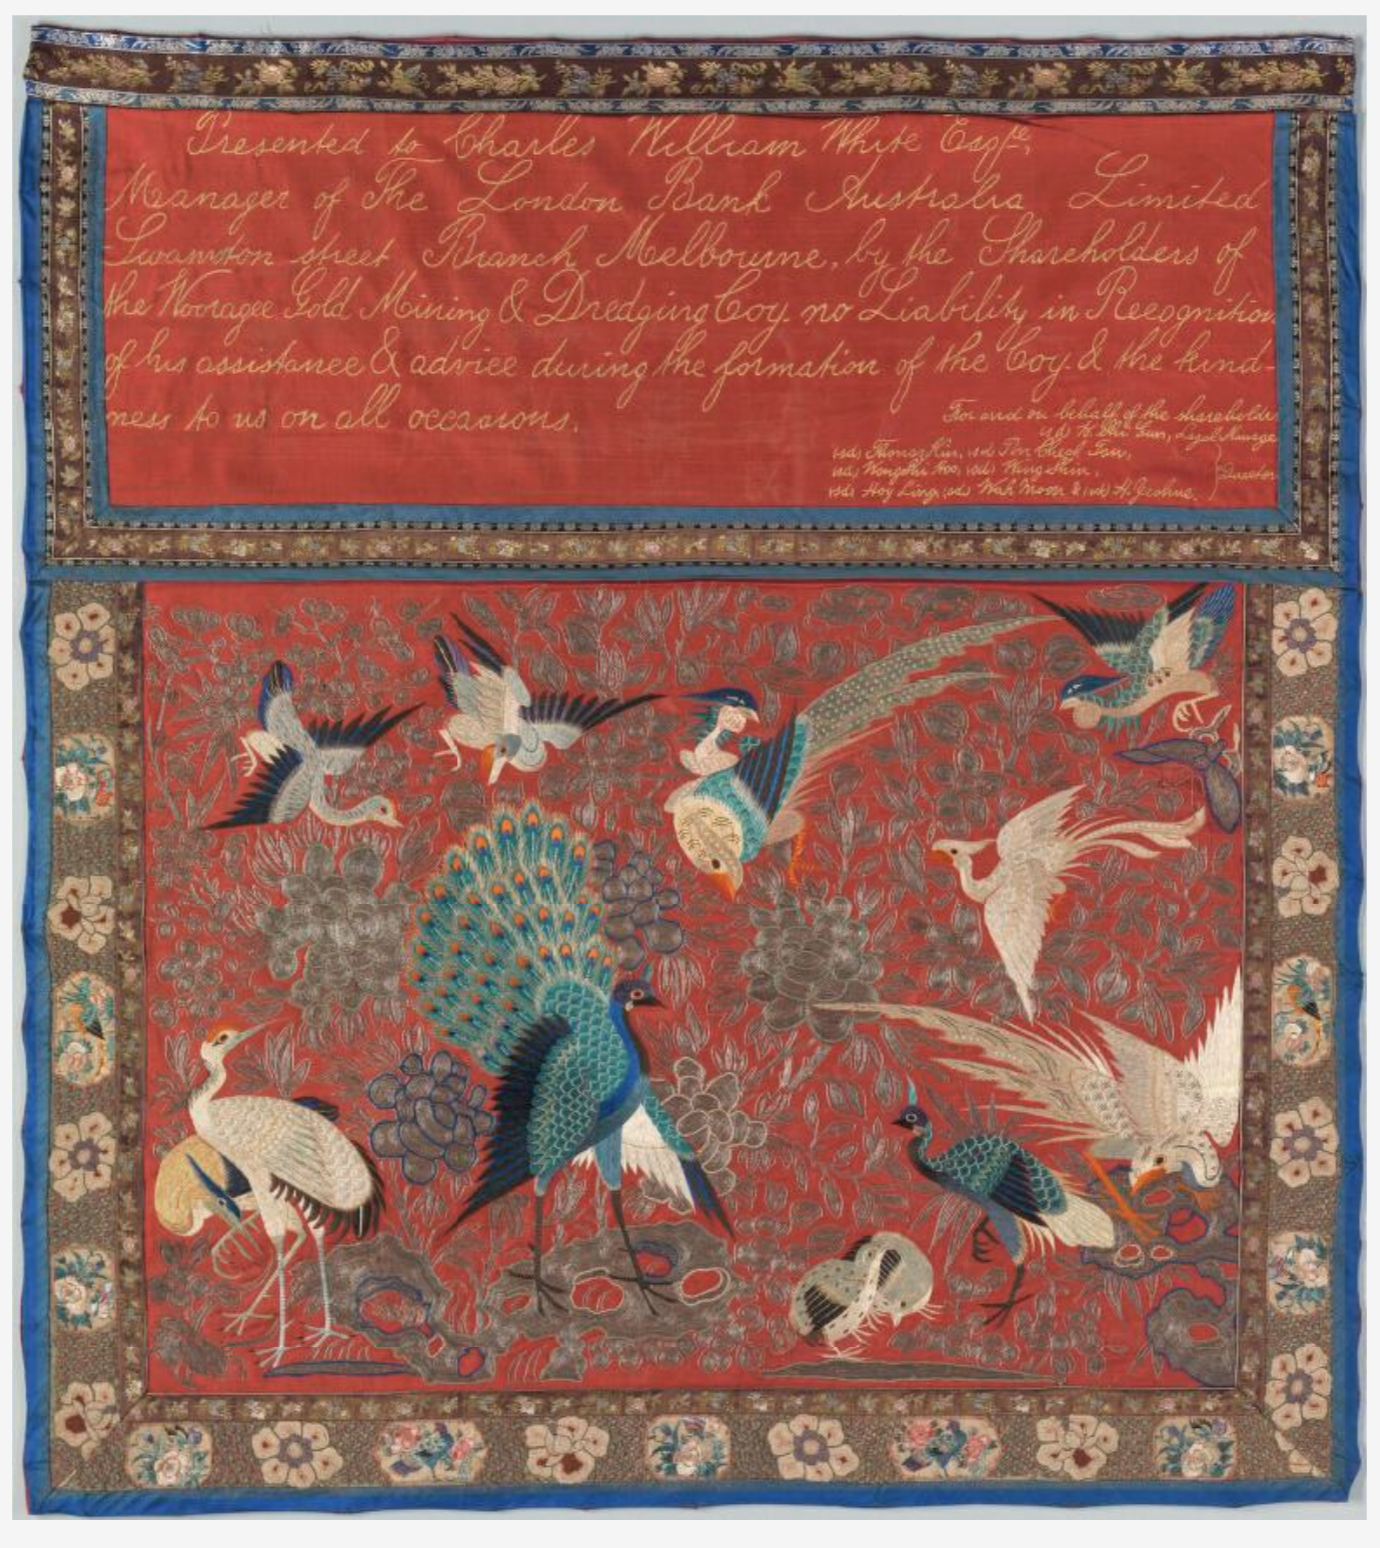 Presented to Charles William White Esqre,
Manager of The London Bank Australia Limited
Swanston street Branch Melbourne, by the Shareholders of
the Wooragee Gold Mining & Dredging Coy. no Liability in Recognition
of his assistance & advice during the formation of the Coy. & the kind-
ness to us on all occasions.
For and on behalf of the shareholders
Sun, Legal Manager
(sd) Thomas (sd) Pon Cheok
(sd) (sd) Wing Shin,
Director
(sd) Hoy Ling (sd) Wah Moon & (sd) H.